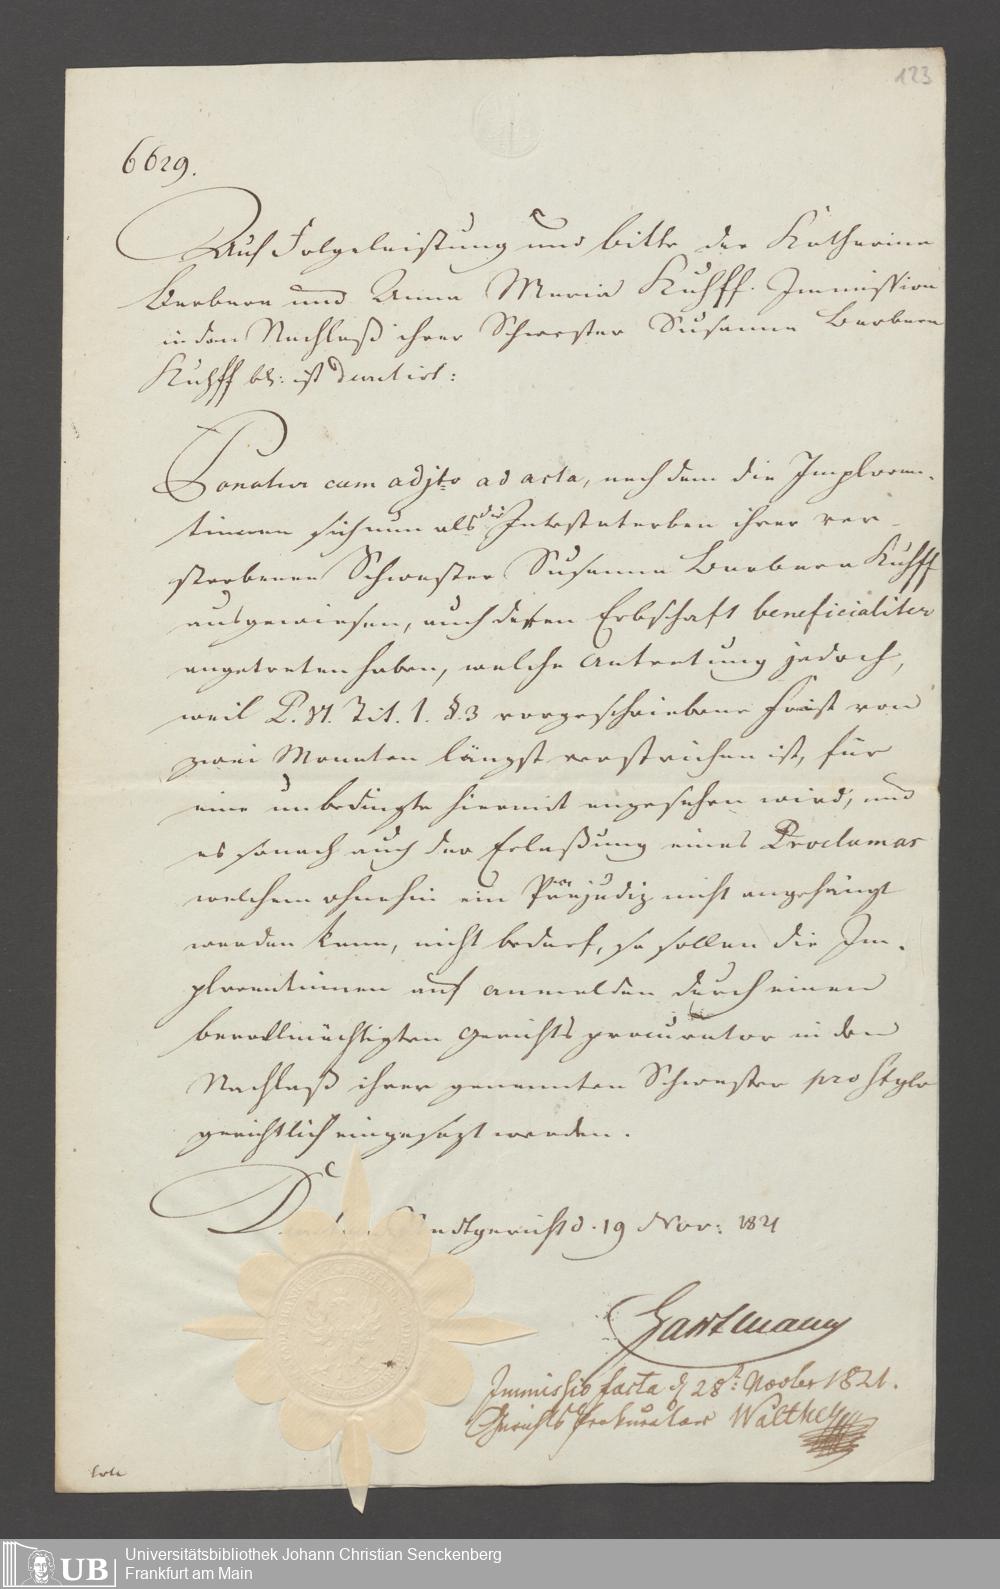 123
6629.
Auf Folgeleistung und bitte der Katharina
Barbara und Anna Maria Kuhff. Immission
in den Nachlaß ihrer Schwester Susanna Barbara
Kuhff btr: ist Decretirt:
Ponatur cum adjto ad acta, nach dem die Imploran-
tinnen sich nun als die Intestaterben ihrer ver-
storbenen Schwester Susanna Barbara Kuhff
ausgewiesen, auch dessen Erbschaft beneficialiter
angetreten haben, welche Antretung jedoch,
weil P. VI. Tit. 1. §. 3 vorgeschriebene Frist von
zwei Monaten längst verstrichen ist, für
eine unbedingte hiermit angesehen wird, und
es sonach auch der Erlaßung eines Proclamas
welchem ohnehin ein Präjudiz nicht angehängt
werden kann, nicht bedarf, so sollen die Im-
plorantinnen auf Anmelden durch einen
bevollmächtigten Gerichtsprocurator in den
Nachlaß ihrer genannten Schwester pro stylo
gerichtlich eingesezt werden.
Stadtgericht d. 19 Nov: 1821
Hartmann
Immissio facta d 28t: Novber 1821.
Gerichts Prokurator Walther
Universitätsbibliothek Johann Christian Senckenberg
UB Frankfurt am Main